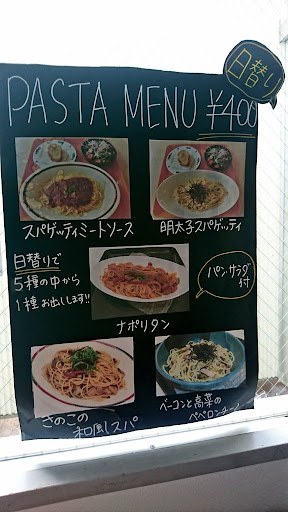 日替り
PASTA MENU ¥400
スパゲッティミートソース
明太子スパゲッティ
日替りで
5種の中から
1種お出しします!!
パン・サラダ
付
ナポリタン
きのこの
和風スパ
ベーコンと高菜の
ペペロンチーノ